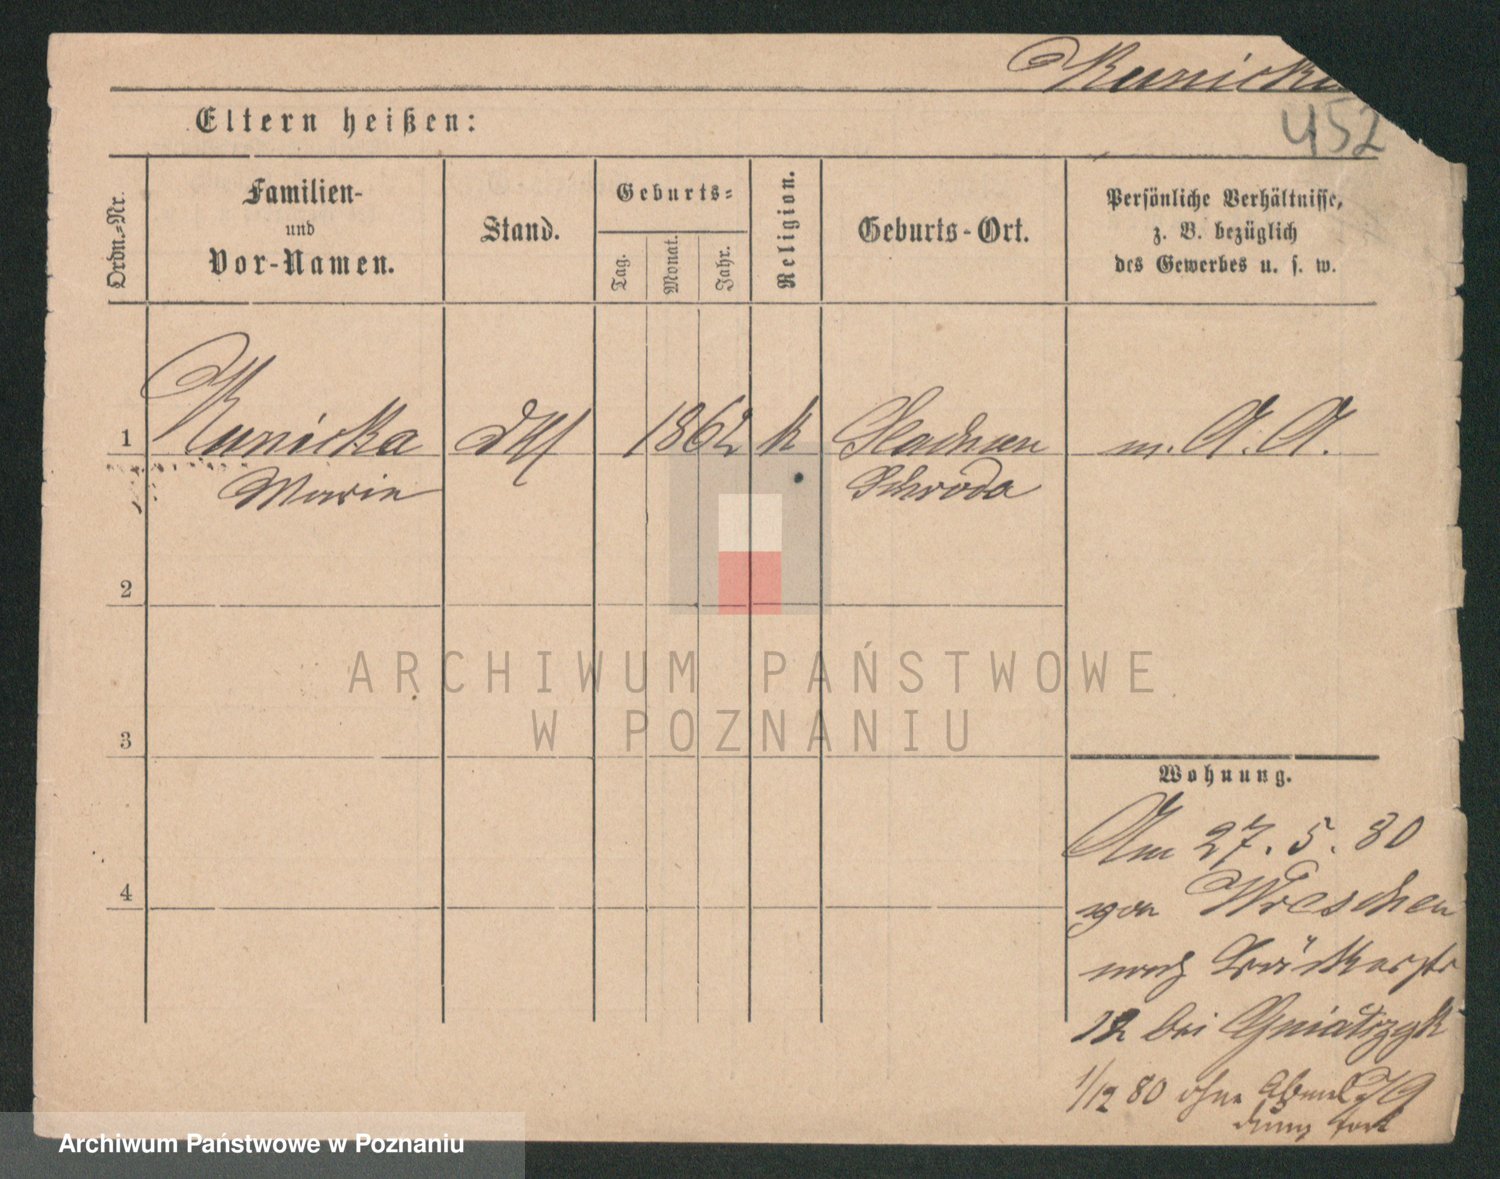 Kunicka
452
Eltern heißen:
Ordn.=Nr.
Familien-
und
Vor-Namen.
Stand.
Geburts=
Tag.
Monat.
Jahr.
Religion.
Geburts-Ort.
Persönliche Verhältnisse,
z. B. bezüglich
des Gewerbes u. s. w.
1 Kunicka 1862 k m. A. A.
Marie Schroda
2
3
4
ARCHIWUM PAŃSTWOWE
W POZNANIU
Wohnung.
Am 27. 5. 80
von Wreschen
nach
12 bei
1/12 80 ohne Abmel
dung fort
Archiwum Państwowe w Poznaniu